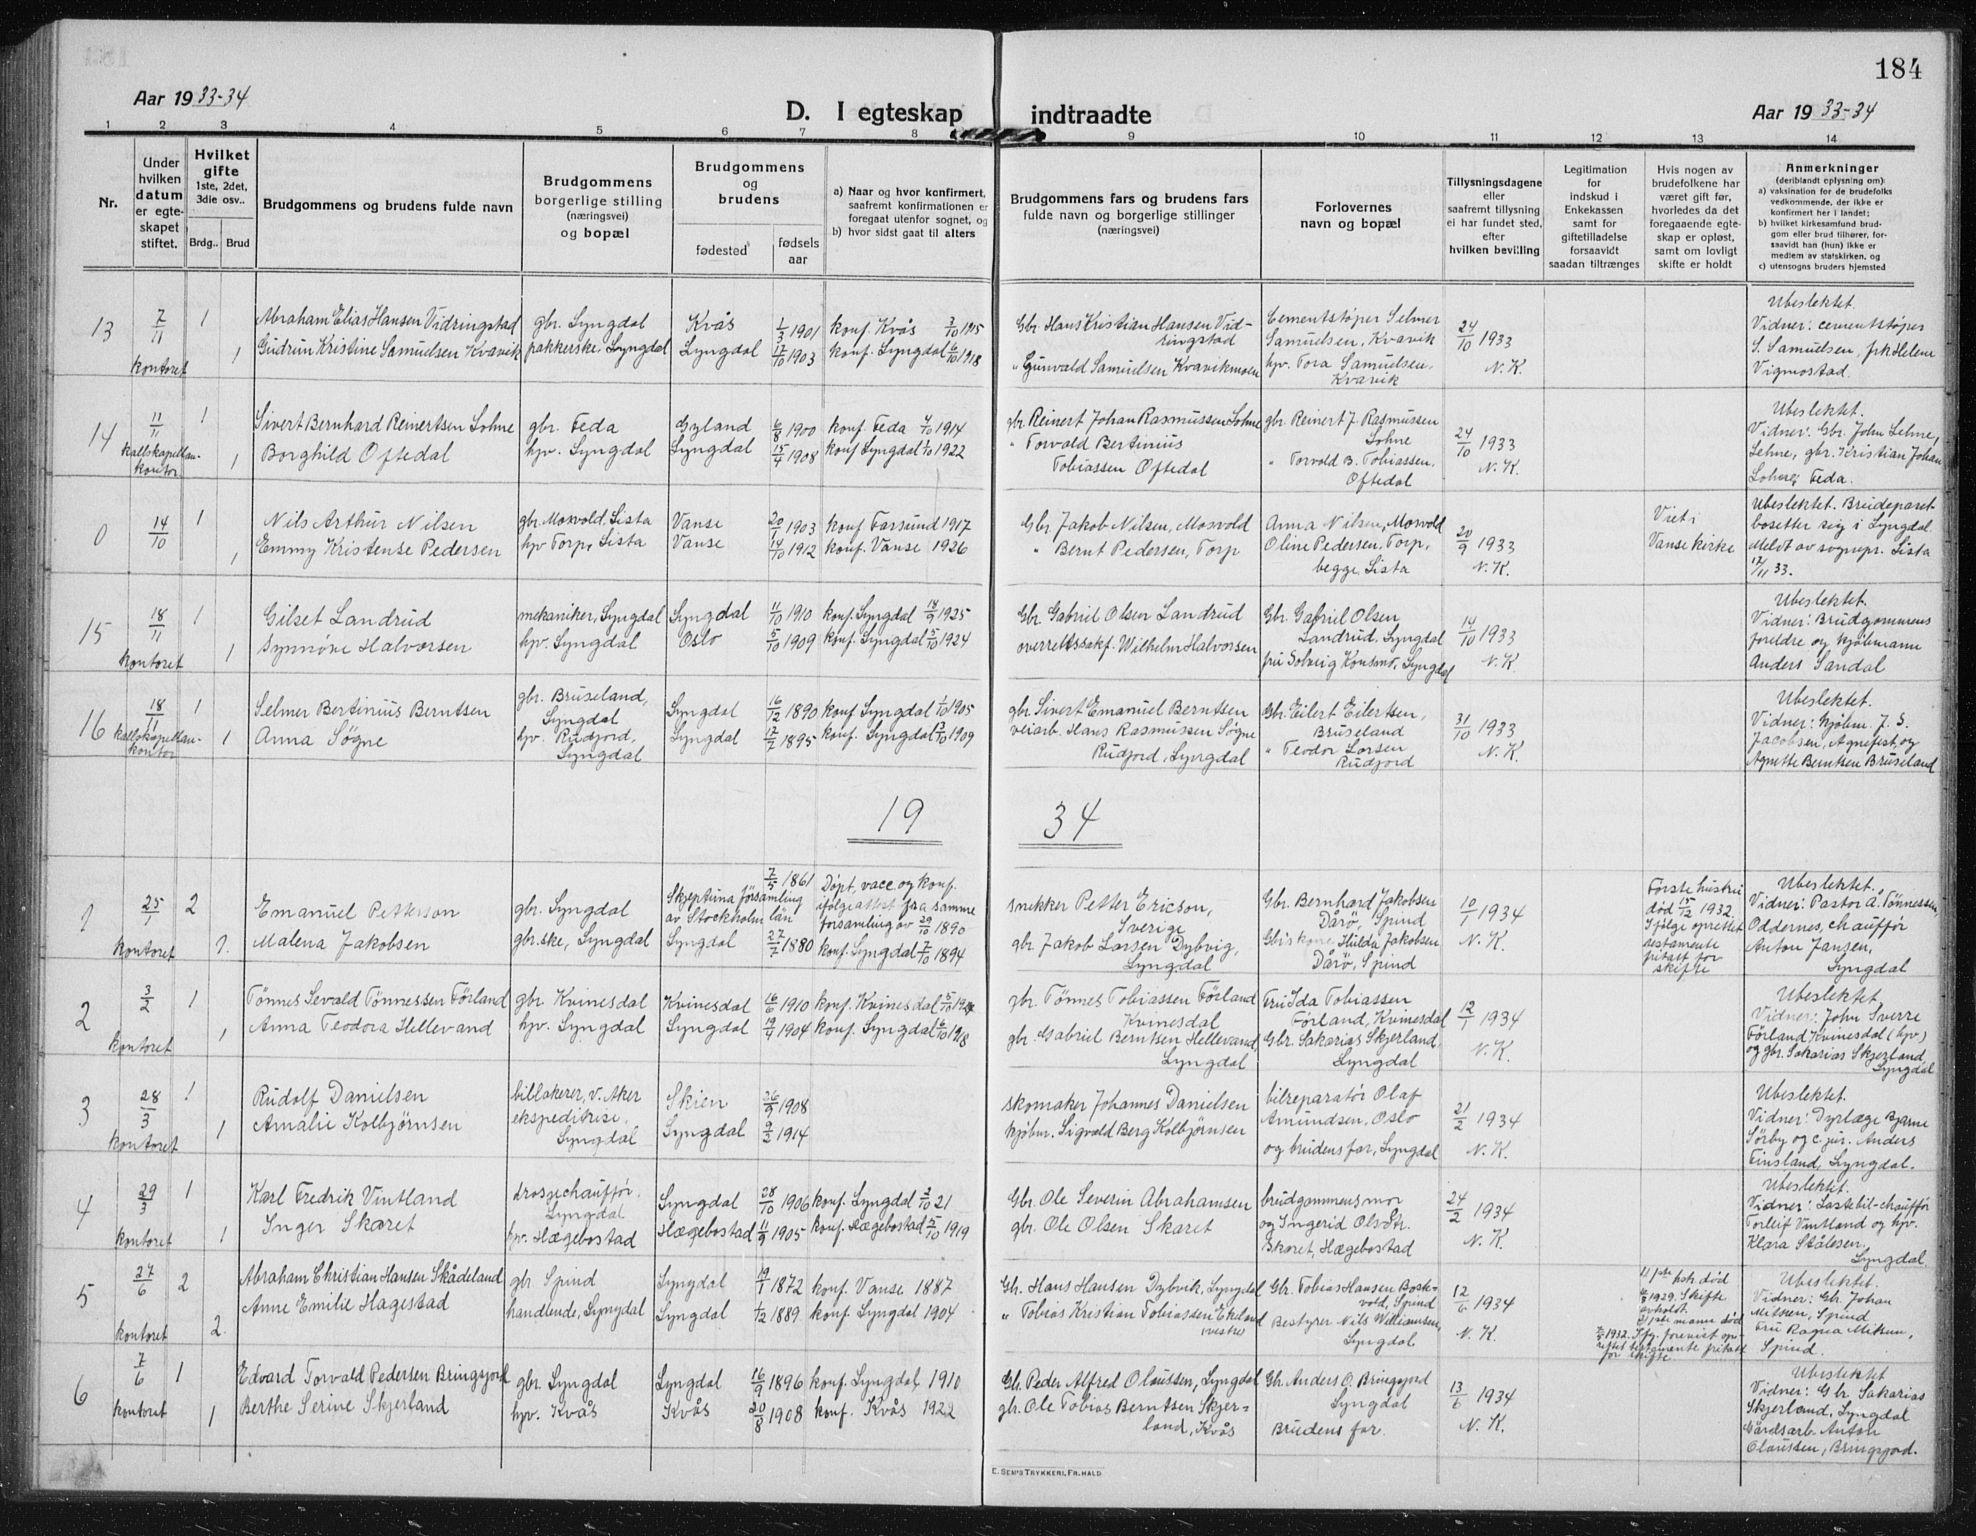 184
Aar 19 33-34
D. I egteskap indtraadte
Aar 19 33-34
1 2 3 4 5 6 7 8 9 10 11 12 13 14
Nr.
Under
hvilken
datum
er egte-
skapet
stiftet.
Hvilket
gifte
1ste, 2det,
3die osv..
Brdg.. Brud
Brudgommens og brudens fulde navn
Brudgommens
borgerlige stilling
(næringsvei)
og bopæl
Brudgommens
og
brudens
fødested
fødsels
aar
a) Naar og hvor konfirmert,
saafremt konfirmationen er
foregaat utenfor sognet, og
b) hvor sidst gaat til alters
Brudgommens fars og brudens fars
fulde navn og borgerlige stillinger
(næringsvei)
Forlovernes
navn og bopæl
Tillysningsdagene
eller
saafremt tillysning
ei har fundet sted,
efter
hvilken bevilling
Legitimation
for
indskud i
Enkekassen
samt for
giftetilladelse
forsaavidt
saadan tiltrænges
Hvis nogen av
brudefolkene har
været gift før,
hvorledes da det
foregaaende egte-
skap er opløst,
samt om lovligt
skifte er holdt
Anmerkninger
(deriblandt oplysning om):
a) vaksination for de brudefolks
vedkommende, der ikke er
konfirmert her i landet;
b) hvilket kirkesamfund brud-
gom eller brud tilhører, for-
saavidt han (hun) ikke er
medlem av statskirken, og
c) utensogns bruders hjemsted
13
7/11
kontoret
1
1
Abraham Elias Hansen Vidringstad
Gudrun Kristine Samuelsen Kvavik
gbr. Lyngdal
pakkerske, Lyngdal
Kvås
Lyngdal
1/3 1901
17/10 1903
konf. Kvås 3/10 1915
konf. Lyngdal 6/10 1918
Gbr. Hans Kristian Hansen Vid-
ringstad
" Gunvald Samuelsen Kvavikmoen
Cementstøper Selmer
Samuelsen, Kvavik
hpv. Tora Samuelsen,
Kvavik
24/10 1933
N. K.
Ubeslektet.
Vidner: cementstøper
S. Samuelsen, frk Helene
Vigmostad.
14
11/11
kallskapellan-
kontor
1
1
Sivert Bernhard Reinertsen Lohne
Borghild Oftedal
gbr. Feda
hpv. Lyngdal
Gyland
Lyngdal
6/8 1900
15/4 1908
konf. Feda 4/10 1914
konf Lyngdal 1/10 1922
gbr. Reinert Johan Rasmussen Lohne
" Torvald Bertinius
Tobiassen Oftedal
gbr. Reinert J. Rasmussen
Lohne
" Torvald B. Tobiassen,
Oftedal
24/10 1933
N. K.
Ubeslektet.
Vidner: Gbr. John Lehne,
Lehne, gbr. Kristian Johan
Lohne, Feda.
0
14/10
1
1
Nils Arthur Nilsen
Emmy Kristense Pedersen
gbr. Mosvold, Lista
hpv Torp, Lista
Vanse
Vanse
20/1 1903
14/10 1912
konf Farsund 1917
konf. Vanse 1926
Gbr. Jakob Nilsen, Mosvold
" Bernt Pedersen, Torp
Anna Nilsen, Mosvold
Oline Pedersen, Torp,
begge Lista
20/9 1933
N. K.
Viet i
Vanse kirke
Ubeslektet. Brudeparet
bosetter seg i Lyngdal
Meldt av sognepr. Lista
17/11 33.
15
18/11
kontoret
1
1
Gilset Landrud
Synnøve Halvorsen
mekaniker, Lyngdal
hpv. Lyngdal
Lyngdal
Oslo
11/10 1910
5/10 1909
konf. Lyngdal 18/9 1925
konf. Lyngdal 5/10 1924
Gbr. Gabriel Olsen Landrud
overrettssakf. Wilhelm Halvorsen
Gbr. Gabriel Olsen
Landrud, Lyngdal
fru Solveig Konsmo, Lyngdal
14/10 1933
N. K
Ubeslektet.
Vidner: Brudgommens
foreldre og kjøbmann
Anders Sandal
16
18/11
kallskapellan-
kontor
1
1
Selmer Bertinius Berntsen
Anna Søgne
gbr. Bruseland,
Lyngdal
hpv. Rudjord,
Lyngdal
Lyngdal
Lyngdal
16/12 1890
17/2 1895
konf Lyngdal 1/10 1905
konf. Lyngdal 13/10 1909
gbr. Sivert Emanuel Berntsen
veiarb. Hans Rasmussen Søgne
Rudjord, Lyngdal
Gbr. Eilert Eilertsen,
Bruseland
" Teodor Larsen
Rudjord
31/10 1933
N. K.
Ubeslektet.
Vidner: kjøbm. J. S.
Jacobsen, Agnefest, og
Agnette Berntsen Bruseland
19 34
1
25/1
kontoret
2
2.
Emanuel Petterson
Malena Jakobsen
gbr. Lyngdal
gbr.ske, Lyngdal
Skeptuna församling
av Stockholm län
Lyngdal
7/5 1861
27/7 1880
Døpt, vacc. og konf.
ifølge attest fra samme
forsamling av 29/10 1890
konf. Lyngdal 7/10 1894
snekker Petter Ericson,
Sverige
gbr. Jakob Larsen Dybvig,
Lyngdal
Gbr. Bernhard Jakobsen
Dårø, Spind
Gbr.s kone Hilda Jakobsen
Dårø, Spind
10/1 1934
N. K.
Første hustru
død 15/12 1932.
Ifølge oprettet
testamente
fritatt for
skifte
Ubeslektet.
Vidner: Pastor A. Tønnessen,
Oddernes, chauffør
Anton Jansen,
Lyngdal
2
3/2
kontoret
1
1
Tønnes Sevald Tønnessen Førland
Anna Teodora Hellevand
gbr. Kvinesdal
hpv. Lyngdal
Kvinesdal
Lyngdal
16/6 1910
19/9 1904
konf. Kvinesdal 5/10 1924
konf. Lyngdal 6/10 1918
gbr. Tønnes Tobiassen Førland
Kvinesdal
gbr. Gabriel Berntsen Hellevand,
Lyngdal
Fru Ida Tobiassen
Førland, Kvinesdal
Gbr. Sakarias Skjerland,
Lyngdal
12/1 1934
N. K.
Ubeslektet
Vidner: John Sverre
Førland Kvinesdal (hpv)
og gbr. Sakarias Skjerland
Lyngdal
3
28/3
kontoret
1
1
Rudolf Danielsen
Amalie Kolbjørnsen
billakerer, V. Aker
ekspeditrise,
Lyngdal
Skien
Lyngdal
26/9 1908
9/2 1914
skomaker Johannes Danielsen
kjøbm. Sigvald Berg Kolbjørnsen
bilreparatør Olaf
Amundsen, Oslo
og brudens far, Lyngdal
21/2 1934
N. K.
Ubeslektet.
Vidner: Dyrlæge Bjarne
Sørby og c. jur. Anders
Finsland, Lyngdal.
4
29/3
kontoret
1
1
Karl Fredrik Vintland
Inger Skaret
drosjechauffør,
Lyngdal
hpv. Hægebostad
Lyngdal
Hægebostad
28/10 1906
11/9 1905
konf. Lyngdal 2/10 21
konf. Hægebostad 5/10 1919
Gbr. Ole Severin Abrahamsen
gbr. Ole Olsen Skaret
brudgommens mor
og Ingerid Olsdtr.
Skaret, Hægebostad
24/2 1934
N. K.
Ubeslektet.
Vidner: Lastebil-chauffør
Torleif Vintland og hpv.
Klara Stålesen,
Lyngdal
5
27/6
kontoret
2
2.
Abraham Christian Hansen Skådeland
Anne Emilie Hagestad
gbr Spind
handlende, Lyngdal
Lyngdal
Lyngdal
19/1 1872
1/12 1889
konf. Vanse 1887
konf. Lyngdal 1904
Gbr. Hans Hansen Dybvik, Lyngdal
" Tobias Kristian Tobiassen Ekeland
vestre
Gbr. Tobias Hansen Bosk-
vold, Spind
Bestyrer Nils Williamsen,
Lyngdal
12/6 1934
N. K.
1ste hok død
1929. Skifte
avholdt.
1ste mann død
1932. Ifg. forevist op-
rettet testamente fritatt
for skifte
Ubeslektet.
Vidner: Gbr. Johan
Miksen, Spind
Fru Ragna Miksen,
Spind.
6
7/6
kontoret
1
1
Edvard Torvald Pedersen Bringsjord
Berthe Serine Skjerland
gbr. Lyngdal
hpv. Kvås
Lyngdal
Kvås
16/9 1896
20/8 1908
konf. Lyngdal, 1910
konf. Kvås 1922
Gbr. Peder Alfred Olaussen, Lyngdal
gbr. Ole Tobias Berntsen Skjer-
land, Kvås
Gbr. Anders O. Bringsjord
Lyngdal
Brudens far.
13/6 1934
N. K.
Ubeslektet
Vidner: Gbr Sakarias
Skjerland, Lyngdal
Gårdsarb. Anton
Olaussen, Bringsjord.
E. SEM'S TRYKKERI, FR.HALD